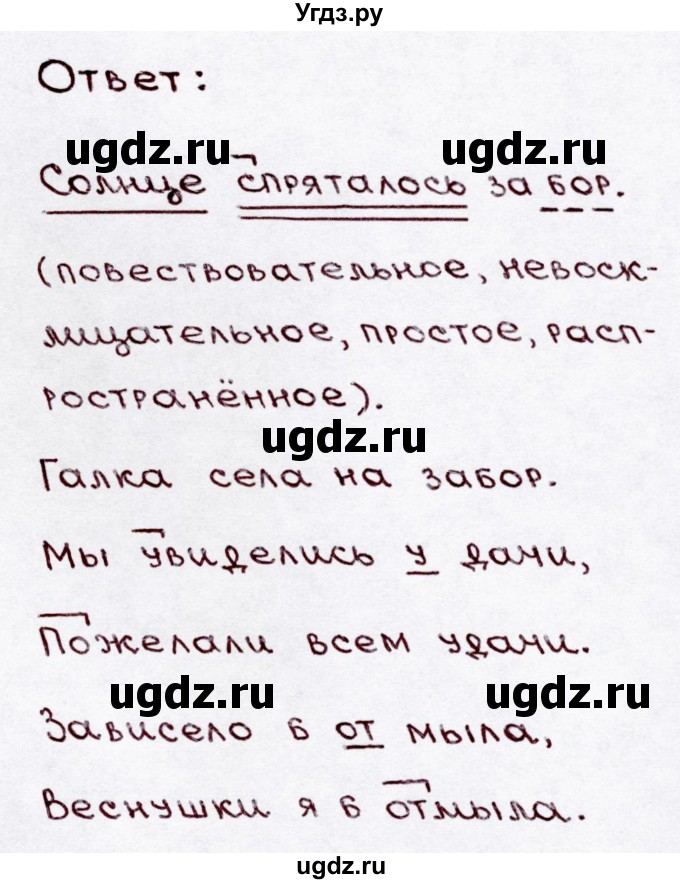 Угдз.ру
Ответ:
ugdz.ru ugdz.ru
Солнце спряталось за бор.
(повествовательное, невоск-
лицательное, простое, расп-
ространённое).
ugdz.ru
Галка села на забор.
Мы увиделись у дачи,
Пожелали всем удачи.
ugdz.ru ugdz.ru
Зависело б от мыла,
Веснушки я б отмыла.
ugdz.ru